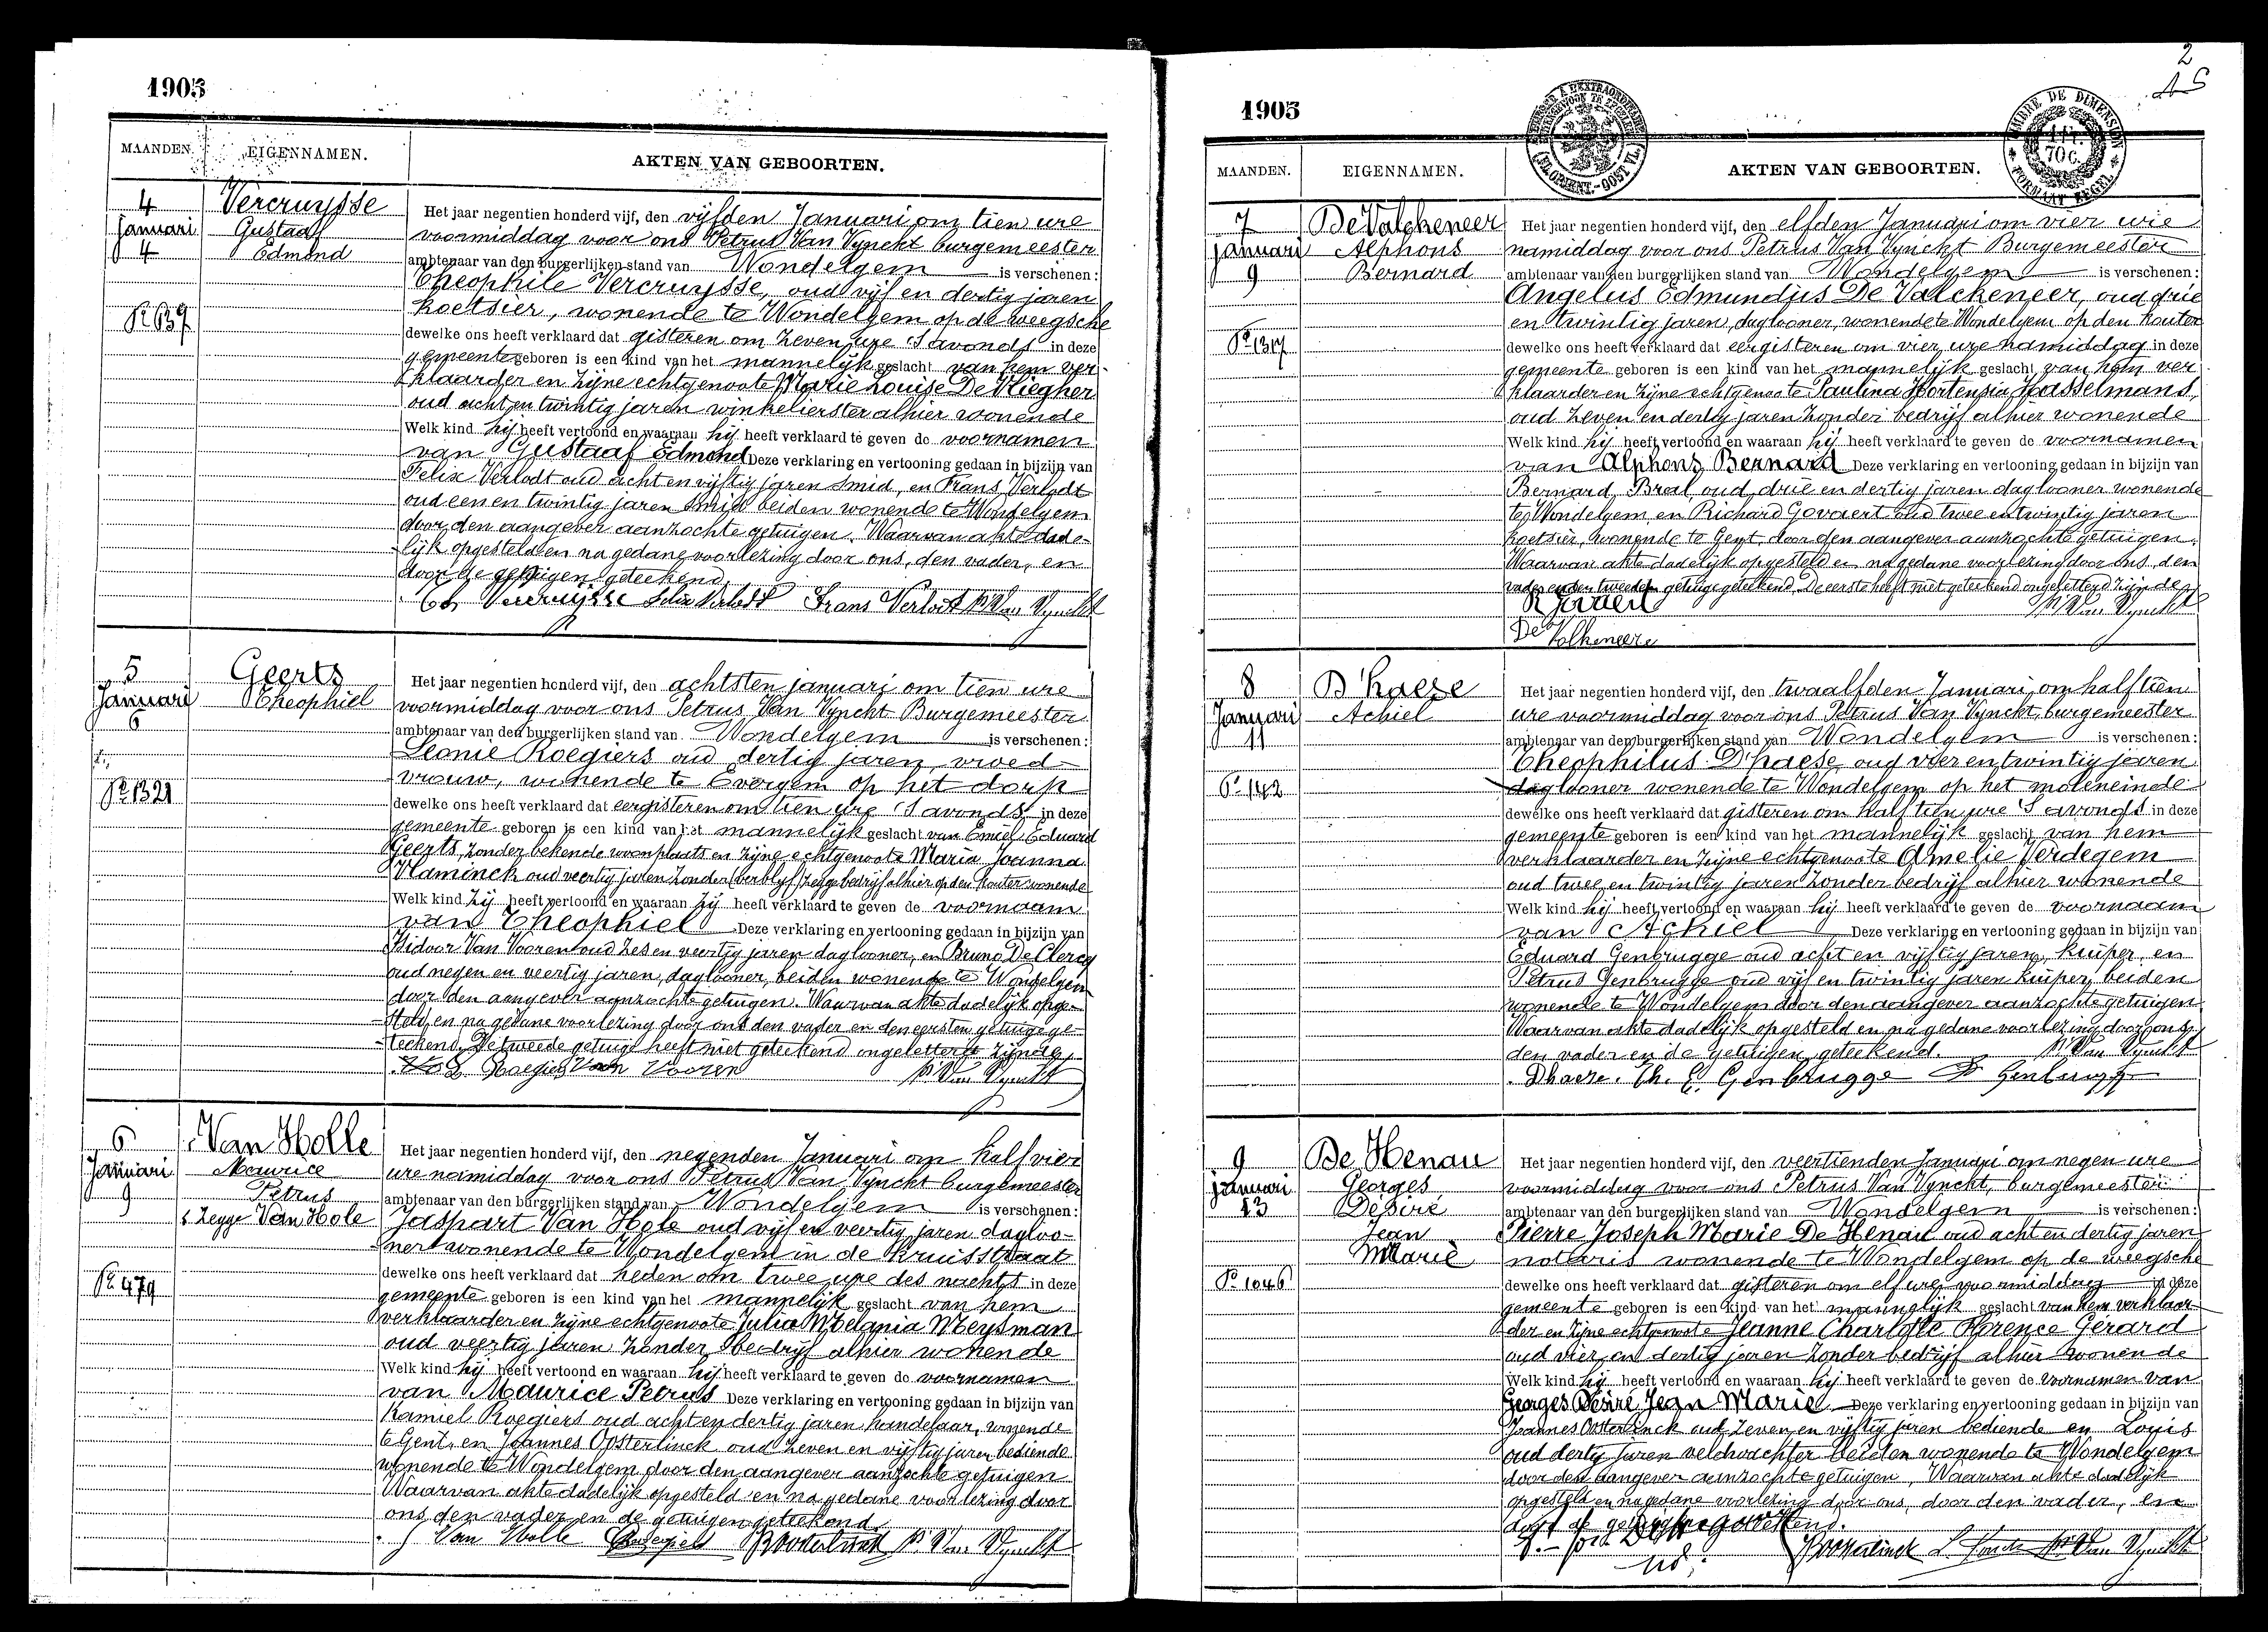 1905
MAANDEN.
EIGENNAMEN.
AKTEN VAN GEBOORTEN.
4
Januari
4
N° 639
Vercruysse
Gustaaf
Edmond
Het jaar negentien honderd vijf, den vijfden Januari om tien ure
voormiddag voor ons Petrus Van Vynckt burgemeester
ambtenaar van den burgerlijken stand van Wondelgem is verschenen:
Theophile Vercruysse, oud vijf en dertig jaren
koetsier, wonende te Wondelgem op de weegsche
dewelke ons heeft verklaard dat gisteren om zeven ure 's avonds in deze
gemeente geboren is een kind van het mannelijk geslacht van hem ver-
klaarder en zijne echtgenoote Marie Louise De Vliegher
oud acht en twintig jaren winkelierster alhier wonende
Welk kind hij heeft vertoond en waaraan hij heeft verklaard te geven de voornamen
van Gustaaf Edmond Deze verklaring en vertooning gedaan in bijzijn van
Felix Verlodt oud acht en vijftig jaren smid, en Frans Verlodt
oud een en twintig jaren smid beiden wonende te Wondelgem
door den aangever aanzochte getuigen. Waarvan akte dade-
lijk opgesteld en na gedane voorlezing door ons, den vader, en
door de getuigen geteekend.
Th Vercruysse Felix Verlodt Frans Verlodt P. Van Vynckt
5
Januari
6
N° 1321
Geerts
Theophiel
Het jaar negentien honderd vijf, den achtsten januari om tien ure
voormiddag voor ons Petrus Van Vynckt Burgemeester
ambtenaar van den burgerlijken stand van Wondelgem is verschenen:
Leonie Roegiers oud dertig jaren, vroed-
vrouw, wonende te Evergem op het dorp
dewelke ons heeft verklaard dat eergisteren om tien ure 's avonds in deze
gemeente geboren is een kind van het mannelijk geslacht van Emiel Eduard
Geerts, zonder bekende woonplaats en zijne echtgenoote Maria Joanna
Vlaminck oud veertig jaren zonder (verblyf) zegge bedrijf alhier op den kouter wonende
Welk kind zij heeft vertoond en waaraan zij heeft verklaard te geven de voornaam
van Theophiel Deze verklaring en vertooning gedaan in bijzijn van
Isidoor Van Vooren oud zes en veertig jaren daglooner, en Bruno De Clercq
oud negen en veertig jaren, daglooner, beiden wonende te Wondelgem
door den aangever aanzochte getuigen. Waarvan akte dadelijk opge-
steld en na gedane voorlezing door ons den vader en den eersten getuige ge-
teekend. De tweede getuige heeft niet geteekend ongeletterd zijnde
L. Roegiers Van Vooren P. Van Vynckt
6
Januari
9
N° 479
Van Holle
Maurice
Petrus
s. zegge Van Hole
Het jaar negentien honderd vijf, den negenden Januari om half vier
ure namiddag voor ons Petrus Van Vynckt burgemeester
ambtenaar van den burgerlijken stand van Wondelgem is verschenen:
Jaspart Van Hole oud vijf en veertig jaren dagloo-
ner wonende te Wondelgem in de Kruisstraat
dewelke ons heeft verklaard dat heden om twee ure des nachts in deze
gemeente geboren is een kind van het mannelijk geslacht van hem
verklaarder en zijne echtgenoote Julia Melania Meysman
oud veertig jaren zonder bedrijf alhier wonende
Welk kind hij heeft vertoond en waaraan hij heeft verklaard te geven de voornamen
van Maurice Petrus Deze verklaring en vertooning gedaan in bijzijn van
Kamiel Roegiers oud acht en dertig jaren handelaar, wonende
te Gent, en Joannes Oosterlinck oud zeven en vijftig jaren bediende
wonende te Wondelgem door den aangever aanzochte getuigen
Waarvan akte dadelijk opgesteld en na gedane voorlezing door
ons den vader en de getuigen geteekend.
J Van Holle P. Van Vynckt
2
1905
MAANDEN.
EIGENNAMEN.
AKTEN VAN GEBOORTEN.
TIMBRE DE DIMENSION
70 C.
FORMAAT ZEGEL
7
januari
9
N° 1317
De Valckeneer
Alphons
Bernard
Het jaar negentien honderd vijf, den elfden Januari om vier ure
namiddag voor ons Petrus Van Vynckt Burgemeester
ambtenaar van den burgerlijken stand van Wondelgem is verschenen:
Angelus Edmundus De Valckeneer, oud drie
en twintig jaren, daglooner, wonende te Wondelgem op den Kouter
dewelke ons heeft verklaard dat eergisteren om vier ure namiddag in deze
gemeente geboren is een kind van het mannelijk geslacht van hem ver-
klaarder en zijne echtgenoote Paulina Hortensia Hasselmans,
oud zeven en dertig jaren zonder bedrijf alhier wonende
Welk kind hij heeft vertoond en waaraan hij heeft verklaard te geven de voornamen
van Alphons Bernard Deze verklaring en vertooning gedaan in bijzijn van
Bernard Bral oud drie en dertig jaren daglooner wonende
te Wondelgem en Richard Govaert oud twee en twintig jaren
koetsier, wonende te Gent door den aangever aanzochte getuigen.
Waarvan akte dadelijk opgesteld en na gedane voorlezing door ons, den
vader en den tweeden getuige geteekend. De eerste heeft niet geteekend ongeletterd zijnde
R Govaert P. Van Vynckt
De Valkeneer
8
Januari
11
N° 142
D'haeze
Achiel
Het jaar negentien honderd vijf, den twaalfden Januari om half tien
ure voormiddag voor ons Petrus Van Vynckt, burgemeester
ambtenaar van den burgerlijken stand van Wondelgem is verschenen:
Theophilus D'haese, oud vier en twintig jaren
daglooner wonende te Wondelgem op het moleneinde
dewelke ons heeft verklaard dat gisteren om half tien ure 's avonds in deze
gemeente geboren is een kind van het mannelijk geslacht van hem
verklaarder en zijne echtgenoote Amelie Verdegem
oud twee en twintig jaren zonder bedrijf alhier wonende
Welk kind hij heeft vertoond en waaraan hij heeft verklaard te geven de voornaam
van Achiel Deze verklaring en vertooning gedaan in bijzijn van
Eduard Genbrugge oud acht en vijftig jaren, kuiper, en
Petrus Genbrugge oud vijf en twintig jaren kuiper, beiden
wonende te Wondelgem door den aangever aanzochte getuigen
Waarvan akte dadelijk opgesteld en na gedane voorlezing door ons,
den vader en de getuigen geteekend. P. Van Vynckt
Dhaeze. Th. E. Genbrugge P Genbrugge
9
januari
13
N° 1046
De Henau
Georges
Désiré
Jean
Marie
Het jaar negentien honderd vijf, den veertienden Januari om negen ure
voormiddag voor ons Petrus Van Vynckt, burgemeester
ambtenaar van den burgerlijken stand van Wondelgem is verschenen:
Pierre Joseph Marie De Henau oud acht en dertig jaren
notaris wonende te Wondelgem op de weegsche
dewelke ons heeft verklaard dat gisteren om elf ure voormiddag in deze
gemeente geboren is een kind van het mannelijk geslacht van hem verklaar-
der en zijne echtgenoote Jeanne Charlotte Florence Gérard
oud vier en dertig jaren zonder bedrijf alhier wonende
Welk kind hij heeft vertoond en waaraan hij heeft verklaard te geven de voornamen van
Georges Désiré Jean Marie Deze verklaring en vertooning gedaan in bijzijn van
Joannes Oosterlinck oud zeven en vijftig jaren bediende en Louis
oud dertig jaren veldwachter beiden wonende te Wondelgem
door den aangever aanzochte getuigen. Waarvan akte dadelijk
opgesteld en na gedane voorlezing door ons, door den vader, en
door de getuigen geteekend.
Oosterlinck P. Van Vynckt